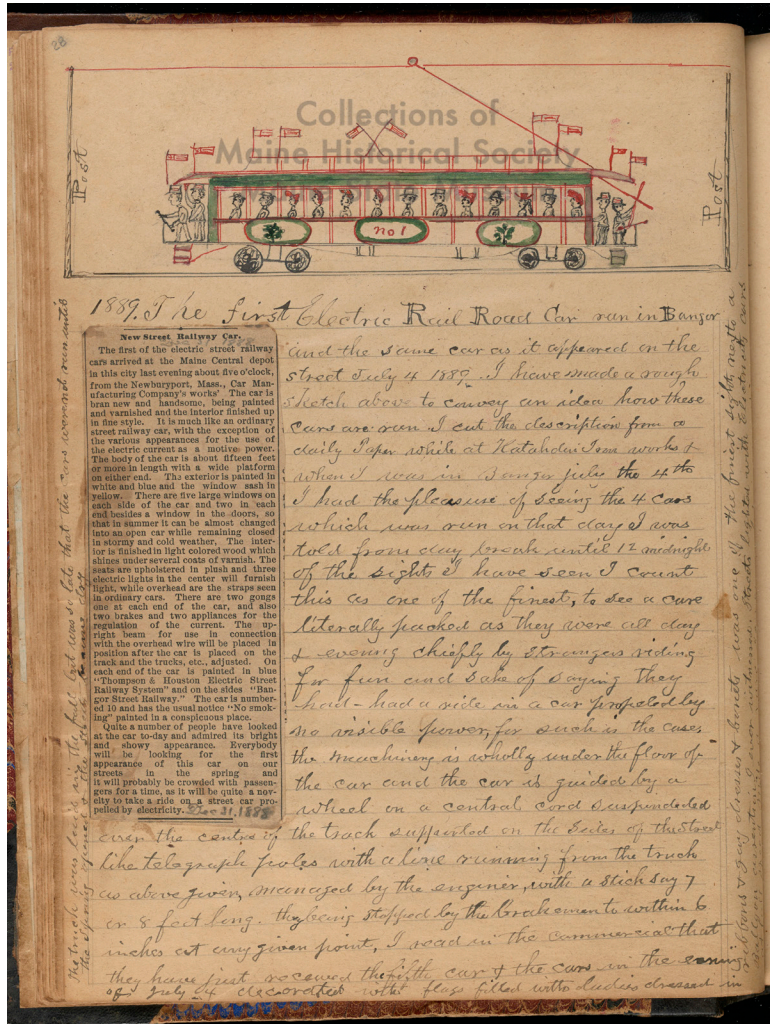 28
Collections of
Maine Historical Society
Post
Post
no 1
1889. The first Electric Rail Road Car run in Bangor
New Street Railway Car.
The first of the electric street railway
cars arrived at the Maine Central depot
in this city last evening about five o'clock,
from the Newburyport, Mass., Car Man-
ufacturing Company's works' The car is
bran new and handsome, being painted
and varnished and the interior finished up
in fine style. It is much like an ordinary
street railway car, with the exception of
the various appearances for the use of
the electric current as a motive power.
The body of the car is about fifteen feet
or more in length with a wide platform
on either end. The exterior is painted in
white and blue and the window sash in
yellow. There are five large windows on
each side of the car and two in each
end besides a window in the doors, so
that in summer it can be almost changed
into an open car while remaining closed
in stormy and cold weather. The inter-
ior is finished in light colored wood which
shines under several coats of varnish. The
seats are upholstered in plush and three
electric lights in the center will furnish
light, while overhead are the straps seen
in ordinary cars. There are two gongs
one at each end of the car, and also
two brakes and two appliances for the
regulation of the current. The up-
right beam for use in connection
with the overhead wire will be placed in
position after the car is placed on the
track and the trucks, etc., adjusted. On
each end of the car is painted in blue
"Thompson & Houston Electric Street
Railway System" and on the sides "Ban-
gor Street Railway." The car is number-
ed 10 and has the usual notice "No smok-
ing" painted in a conspicuous place.
Quite a number of people have looked
at the car to-day and admired its bright
and showy appearance. Everybody
will be looking for the first
appearance of this car on our
streets in the spring and
it will probably be crowded with passen-
gers for a time, as it will be quite a nov-
elty to take a ride on a street car pro-
pelled by electricity. Dec 31, 1888
and the same car as it appeared on the
street July 4 1889. I have made a rough
sketch above to convey an idea how these
cars are run I cut the description from a
daily Paper while at Katahdin Iron works &
when I was in Bangor july the 4th
I had the pleasure of seeing the 4 cars
which was run on that day I was
told from day break until 12 midnight
of the sights I have seen I count
this as one of the finest, to see a care
literally packed as they were all day
& evening chiefly by strangers riding
for fun and sake of saying they
had had a ride in a car propeled by
no visible power, for such is the case
the machinery is wholly under the floor of
the car and the car is guided by a
wheel on a central cord suspended
over the centre of the track supported on the sides of the street
like telegraph poles with a line running from the truck
as above given, managed by the enginer, with a stick say 7
or 8 feet long. they being stopped by the brakemen to within 6
inches at any given point, I read in the commercial that
they have just received the fifth car & the cars in the evening
of July 4 decorated with flags filled with Ladies dressed in
ribbons & gay dresses & bonets was one of the finest sights next to a
the cars were not run until